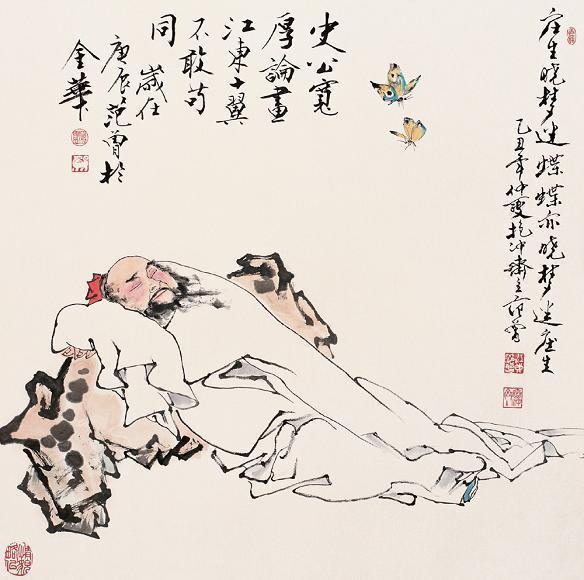 庄生晓梦迷蝶蝶亦晓梦迷庄生
乙丑年仲夏抱冲斋主范曾
史公寬
厚論畫
江東十翼
不敢苟
同
歲在
庚辰范曾於
金華